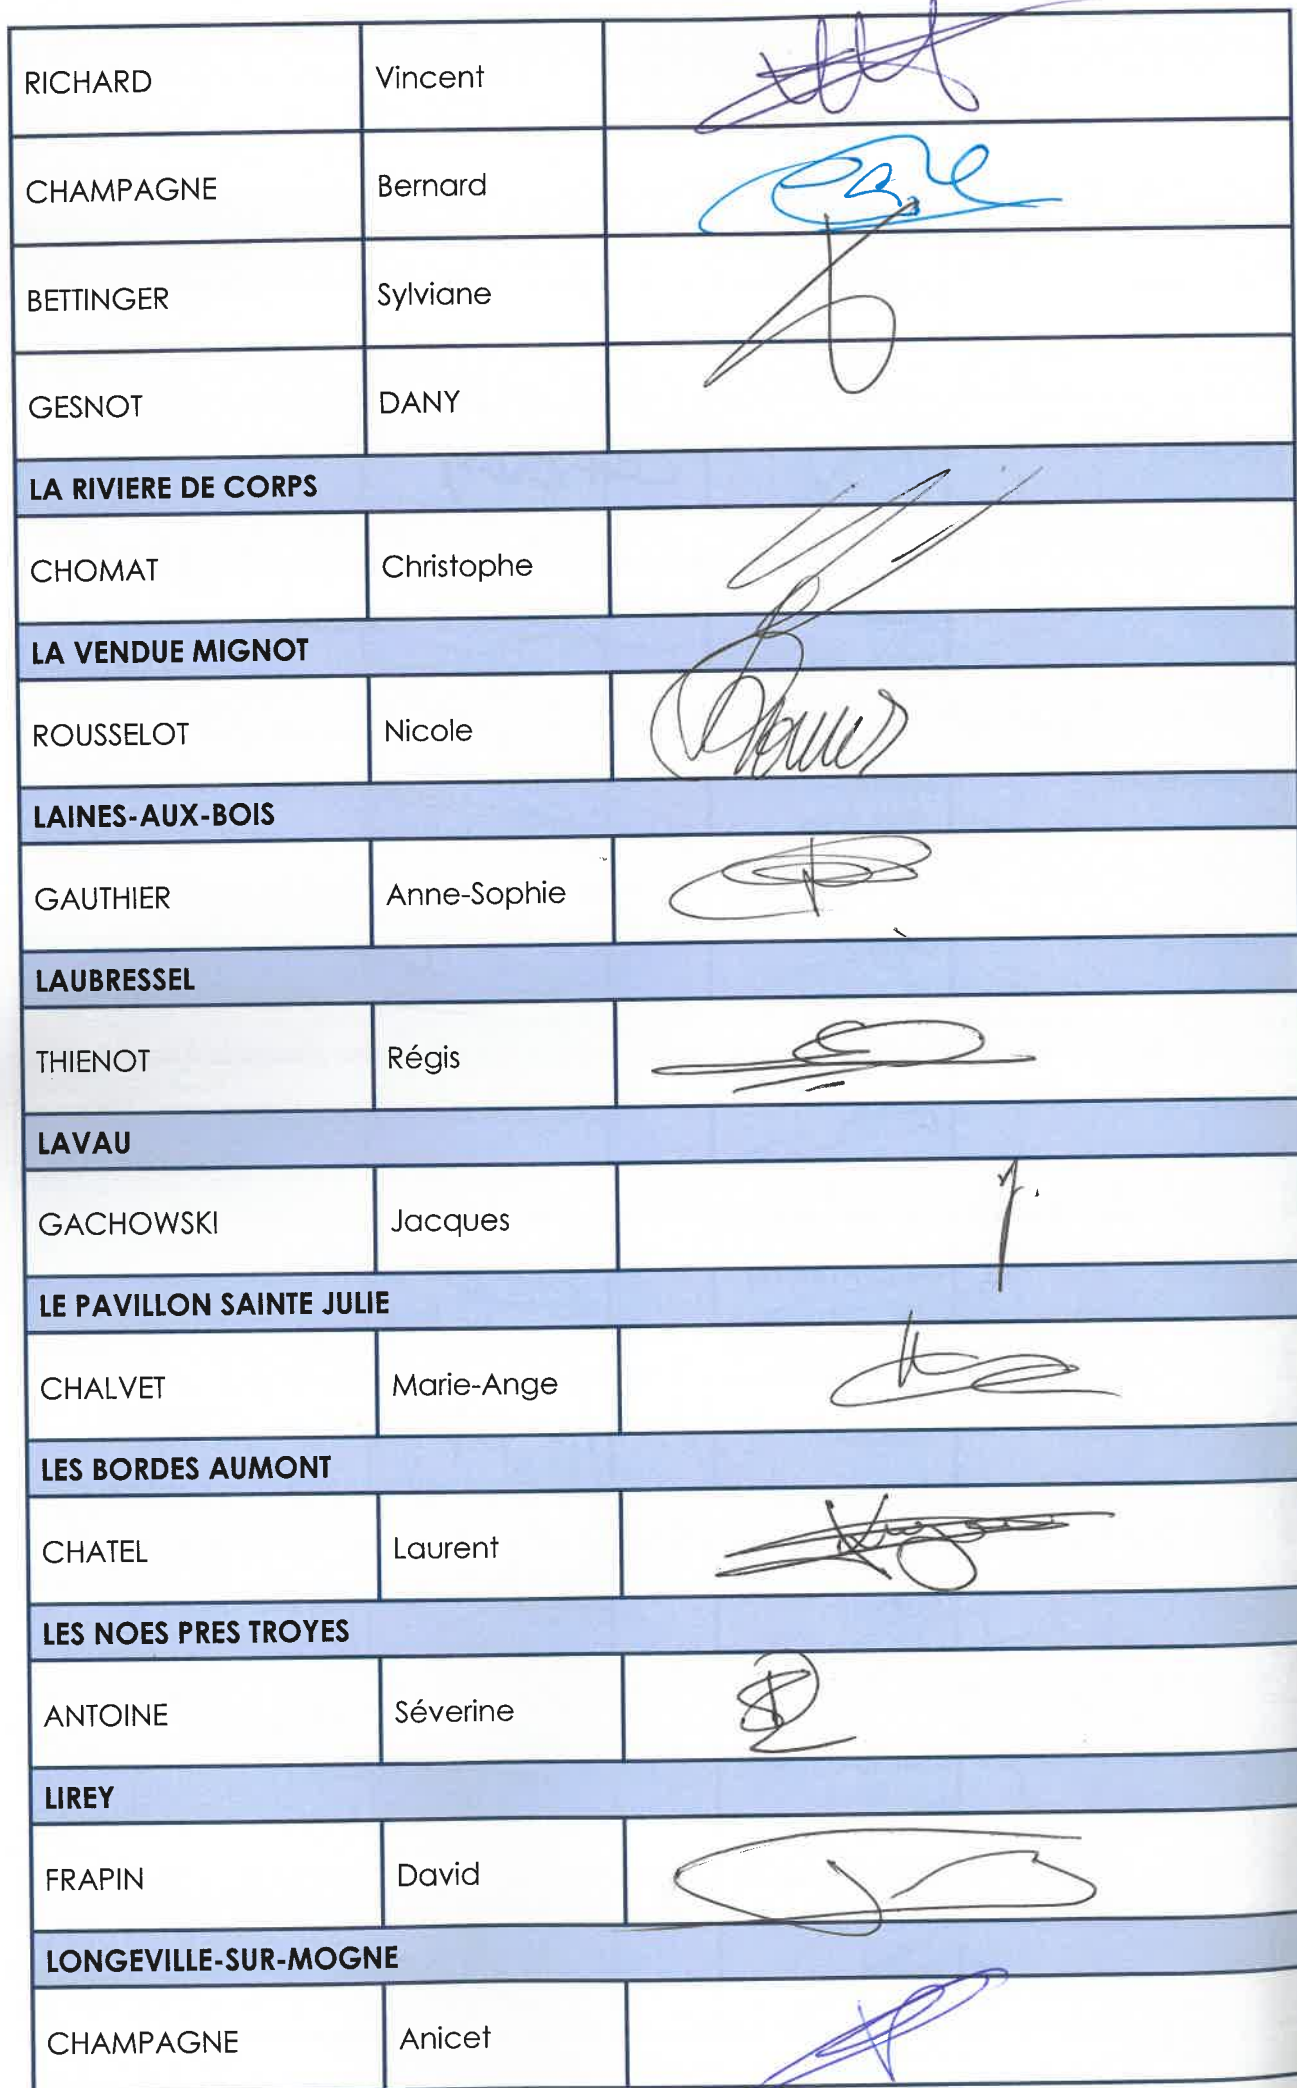 RICHARD Vincent
CHAMPAGNE Bernard
BETTINGER Sylviane
GESNOT DANY
LA RIVIERE DE CORPS
CHOMAT Christophe
LA VENDUE MIGNOT
ROUSSELOT Nicole
LAINES-AUX-BOIS
GAUTHIER Anne-Sophie
LAUBRESSEL
THIENOT Régis
LAVAU
GACHOWSKI Jacques
LE PAVILLON SAINTE JULIE
CHALVET Marie-Ange
LES BORDES AUMONT
CHATEL Laurent
LES NOES PRES TROYES
ANTOINE Séverine
LIREY
FRAPIN David
LONGEVILLE-SUR-MOGNE
CHAMPAGNE Anicet